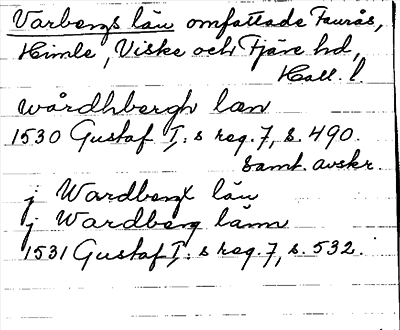 Varbergs län omfattade Faurås,
Himle, Viske och Fjäre hd,
Hall. l.
wårdhbergh læn
1530 Gustaf I:s reg. 7, s. 490.
Samt. avskr.
j Wardbergx län
j Wardberg länn
1531 Gustaf I:s reg. 7, s. 532.